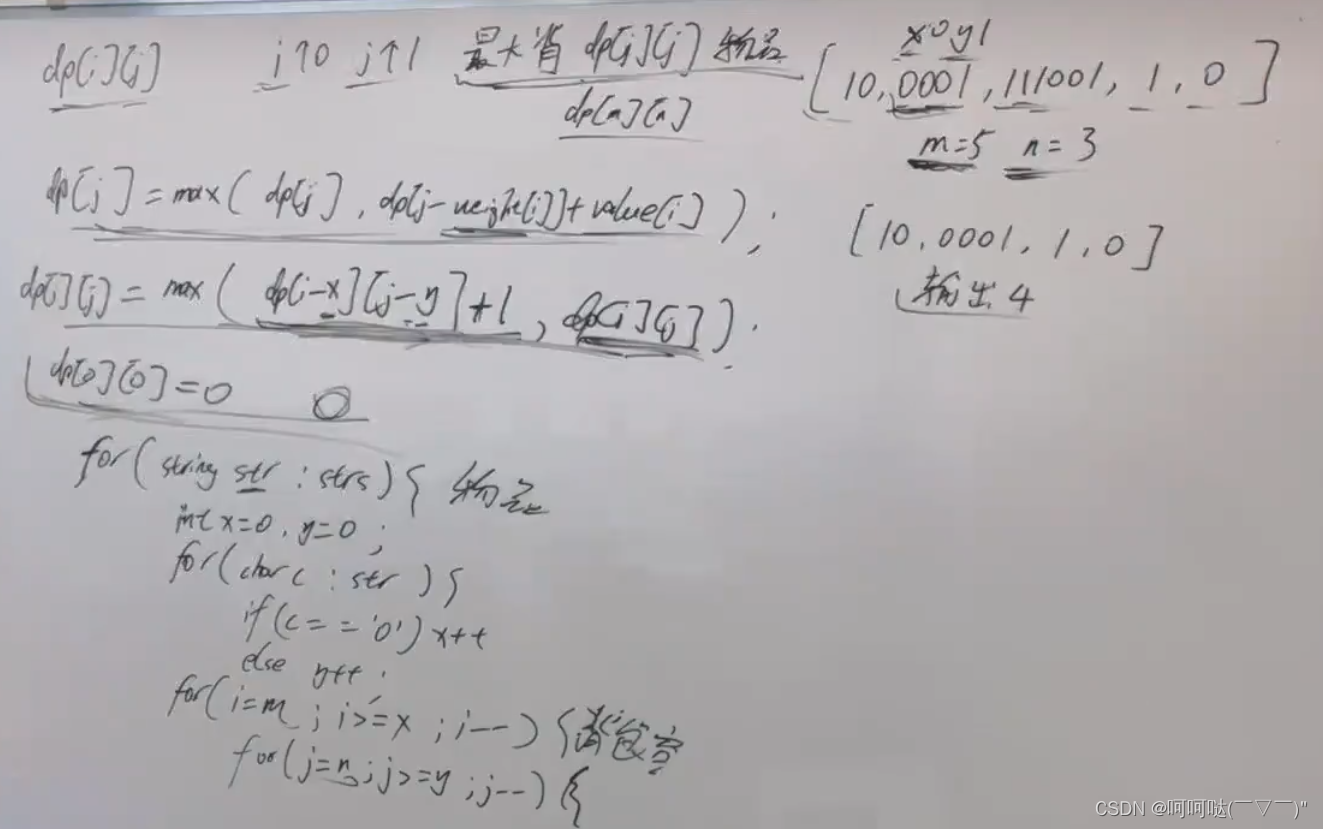 dp[i][j] i个0 j个1 最大背 dp[i][j] 物品
x0 y1
[10, 0001, 111001, 1, 0]
dp[m][n]
m=5 n=3
dp[j] = max( dp[j], dp[j-weight[i]]+value[i] );
[10, 0001, 1, 0]
dp[i][j] = max( dp[i-x][j-y]+1, dp[i][j] ).
输出 4
dp[0][0]=0 0
for( string str : strs) { 物品
int x=0, y=0 ;
for( char c : str ) {
if(c == '0') x++
else y++ ;
for( i=m ; i>=x ; i--) { 背包容
for( j=n ; j>=y ; j--) {
CSDN @呵呵哒(￣▽￣)"